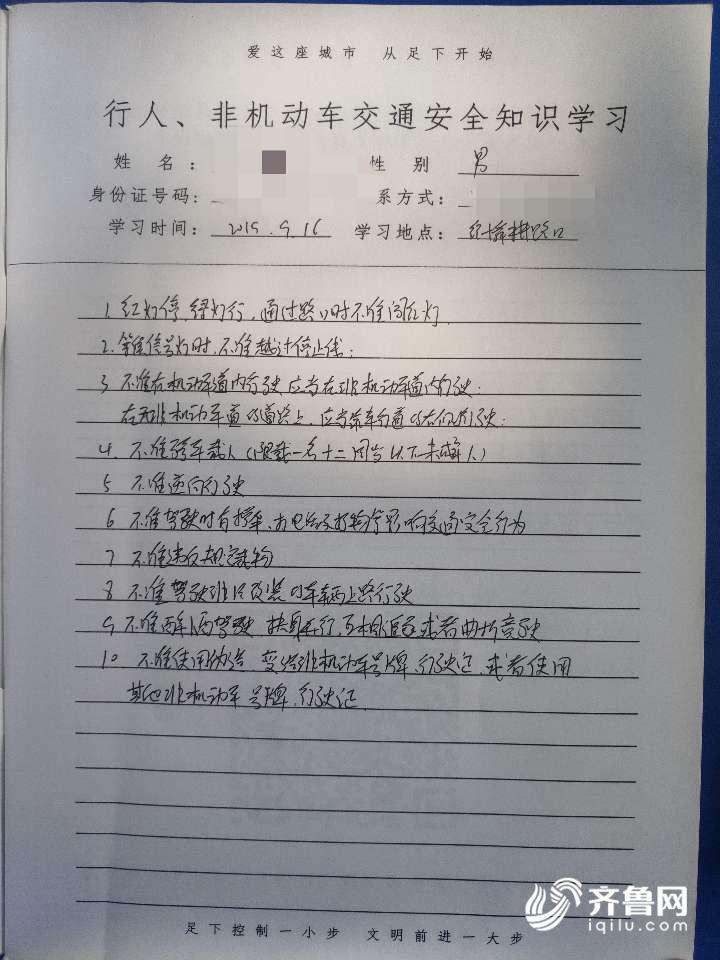 爱这座城市 从足下开始
行人、非机动车交通安全知识学习
姓 名： 性 别 男
身份证号码： 系方式：
学习时间： 2019.9.16 学习地点： 路口
1. 红灯停,绿灯行,通过路口时不准闯红灯.
2. 等信号灯时,不准越过停止线;
3 不准在机动车道内行驶 应当在非机动车道内行驶.
在无非机动车道的道路上,应当靠车行道的右侧行驶;
4. 不准骑车载人(限载一名十二周岁以下未成年人)
5 不准逆向行驶
6 不准驾驶时有 影响交通安全行为
7 不准违反规定载物
8 不准驾驶非法改装的车辆上路行驶
9 不准醉酒驾驶 扶身并行,互相追逐或者曲折竞驶
10 不准使用伪造 变造非机动车号牌,行驶证,或者使用
其他非机动车号牌、行驶证.
足下控制一小步 文明前进一大步
齐鲁网
iqilu.com